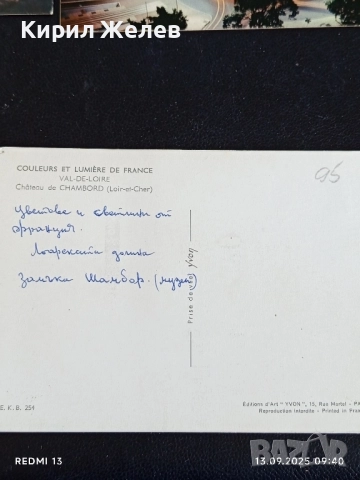 Кирил Желев
COULEURS ET LUMIÈRE DE FRANCE
VAL-DE-LOIRE
Château de CHAMBORD (Loir-et-Cher)
95
Цветове и светлини от
Франция.
Лоарската долина
Замъка Шамбор. (музей)
Prise de vues yvon
E. K. B. 254
Editions d'Art "YVON", 15, Rue Martel - PA
Reproduction Interdite - Printed in Fran
REDMI 13
13.09.2025 09:40
bazar